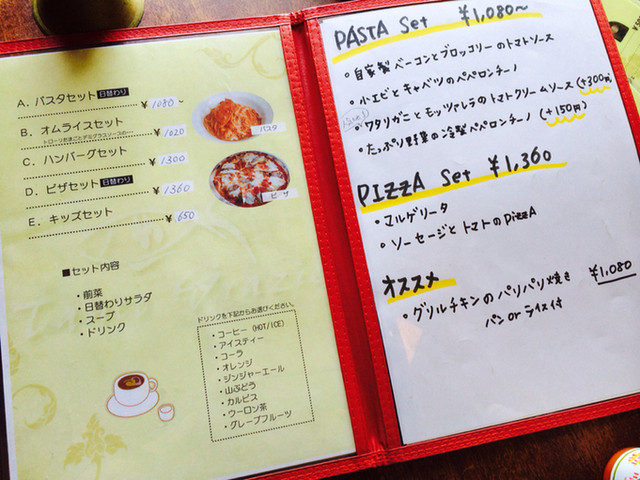 A. パスタセット 日替わり
¥ 1080~
B. オムライスセット
トローリたまごとデミグラスソースの…
¥ 1020
C. ハンバーグセット
¥ 1300
D. ピザセット 日替わり
¥ 1360
E. キッズセット
¥ 650
パスタ
ピザ
■セット内容
・前菜
・日替わりサラダ
・スープ
・ドリンク
ドリンクを下記からお選びください。
・コーヒー (HOT/ICE)
・アイスティー
・コーラ
・オレンジ
・ジンジャーエール
・山ぶどう
・カルピス
・ウーロン茶
・グレープフルーツ
PASTA Set ¥1,080~
・自家製ベーコンとブロッコリーのトマトソース
・小エビとキャベツのペペロンチーノ
・ワタリガニとモッツァレラのトマトクリームソース (+300円)
・たっぷり野菜の冷製ペペロンチーノ (+150円)
PIZZA Set ¥1,360
・マルゲリータ
・ソーセージとトマトのPIZZA
オススメ
・グリルチキンのパリパリ焼き ¥1,080
パン or ライス付